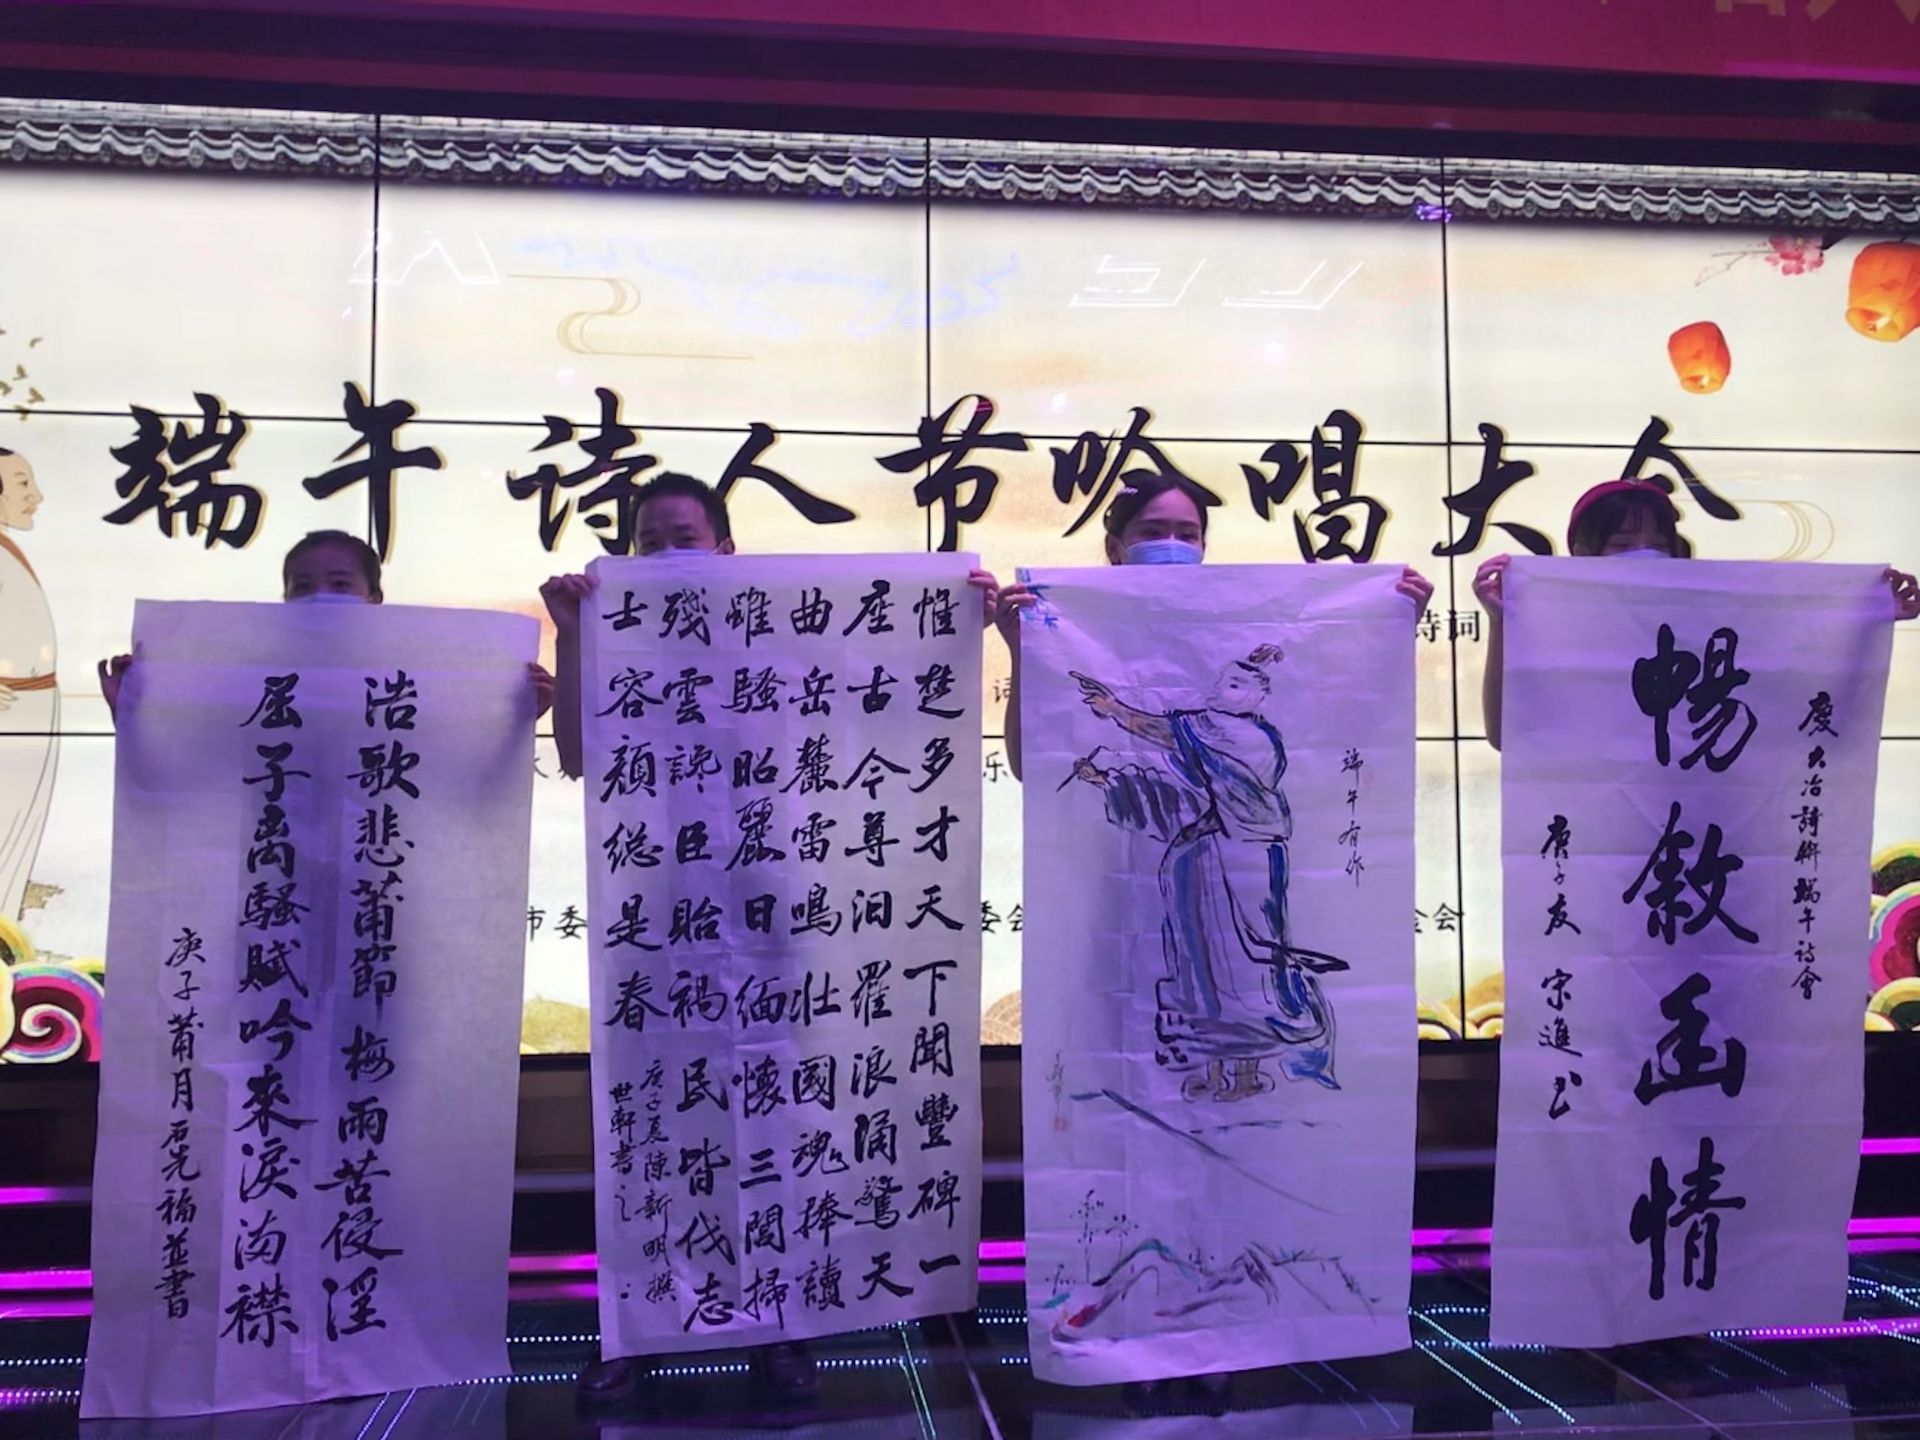 端午诗人节吟唱大会
诗词
词
乐
市委
委会
金会
浩歌悲莆節梅雨苦侵淫
屈子离騷賦吟來淚満襟
庚子莆月石先福並書
惟楚多才天下聞豐碑一
座古今尊汨羅浪涌驚天
曲岳麓雷鳴壯國魂捧讀
雖騷昭麗日缅懷三閭掃
殘雲讒臣貽禍民皆伐志
士容顔総是春
庚子夏陳新明撰
世軒書之
端午有作
慶大冶詩聯端午詩會
暢敘幽情
庚子友宋進書